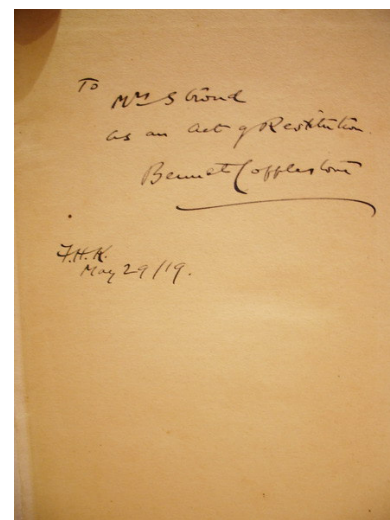 To
Mrs Stroud
as an Act of Restitution
Bennet Copplestone
F.H.K.
May 29/19.